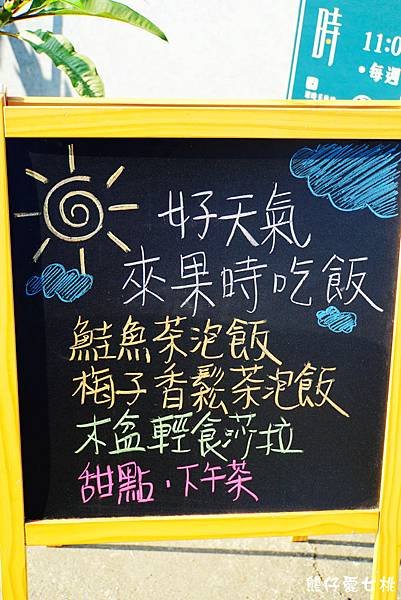 時
11:0
•每週
好天氣
來果時吃飯
鮭魚茶泡飯
梅子香鬆茶泡飯
木盒輕食莎拉
甜點，下午茶
熊仔愛七桃